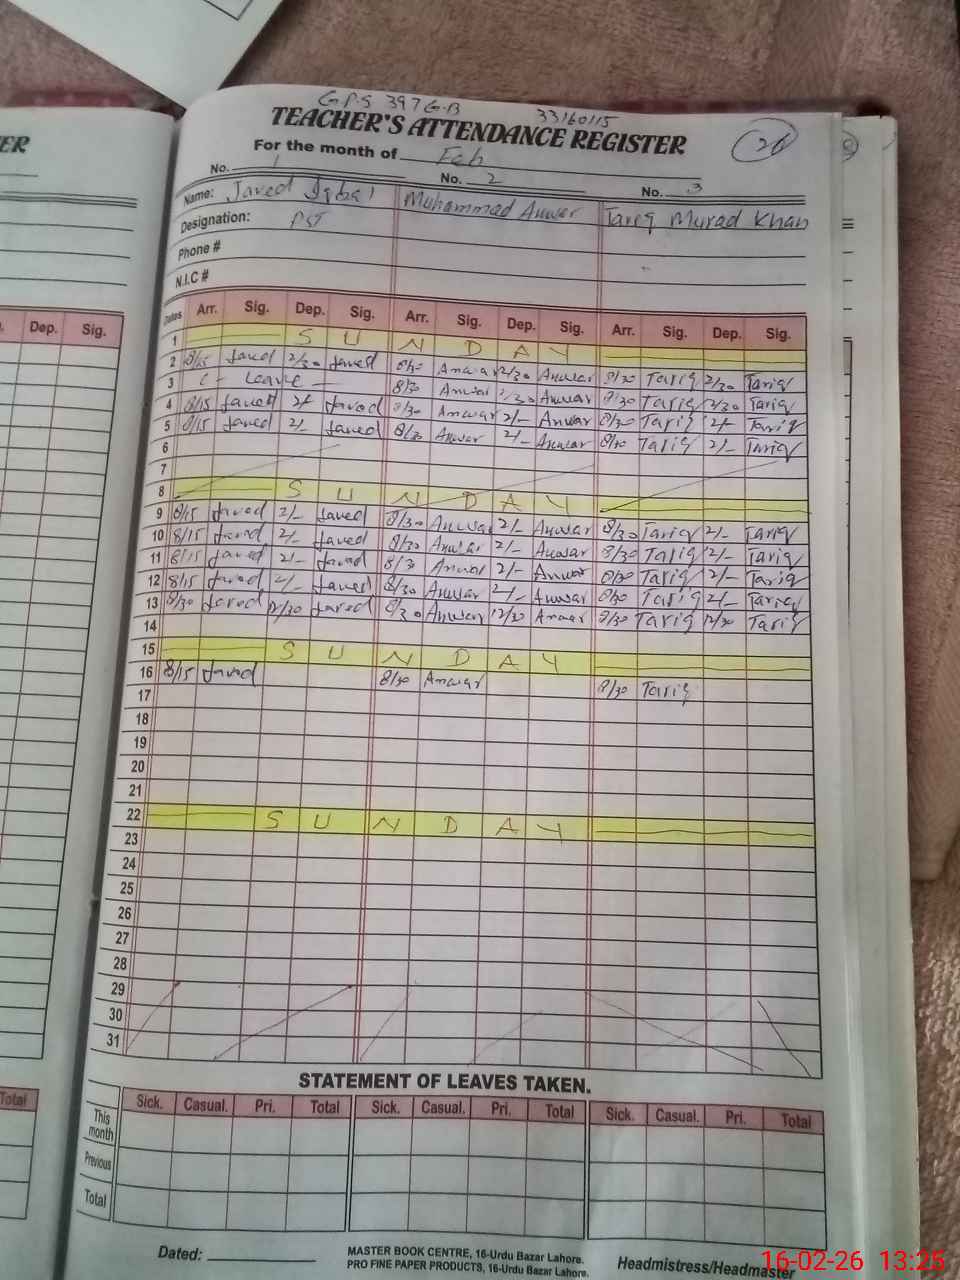 G.P.S 397 G.B 33160115
TEACHER'S ATTENDANCE REGISTER 26
ER
For the month of Feb
No. 1 No. 2 No. 3
Name: Javed Iqbal Muhammad Anwer Tariq Murad Khan
Designation: PST
Phone #
N.I.C #
Dates Arr. Sig. Dep. Sig. Arr. Sig. Dep. Sig. Arr. Sig. Dep. Sig.
Dep. Sig.
1 S U N D A Y
2 8/15 Javed 2/30 Javed 8/30 Anwar 2/30 Anwar 8/30 Tariq 2/30 Tariq
3 C - Leave 8/30 Anwar 2/30 Anwar 8/30 Tariq 2/30 Tariq
4 8/15 Javed 2/- Javed 8/30 Anwar 2/- Anwar 8/30 Tariq 2/- Tariq
5 8/15 Javed 2/- Javed 8/30 Anwar 2/- Anwar 8/30 Tariq 2/- Tariq
6
7
8 S U N D A Y
9 8/15 Javed 2/- Javed 8/30 Anwar 2/- Anwar 8/30 Tariq 2/- Tariq
10 8/15 Javed 2/- Javed 8/30 Anwar 2/- Anwar 8/30 Tariq 2/- Tariq
11 8/15 Javed 2/- Javed 8/3 Anwar 2/- Anwar 8/30 Tariq 2/- Tariq
12 8/15 Javed 2/- Javed 8/30 Anwar 2/- Anwar 8/30 Tariq 2/- Tariq
13 8/30 Javed 12/30 Javed 8/30 Anwar 12/30 Anwar 8/30 Tariq 12/30 Tariq
14
15 S U N D A Y
16 8/15 Javed 8/30 Anwar 8/30 Tariq
17
18
19
20
21
22 S U N D A Y
23
24
25
26
27
28
29
30
31
STATEMENT OF LEAVES TAKEN.
Total
Sick. Casual. Pri. Total Sick. Casual. Pri. Total Sick. Casual. Pri. Total
This month
Previous
Total
Dated:
MASTER BOOK CENTRE, 16-Urdu Bazar Lahore.
PRO FINE PAPER PRODUCTS, 16-Urdu Bazar Lahore.
Headmistress/Headmaster
16-02-26 13:25